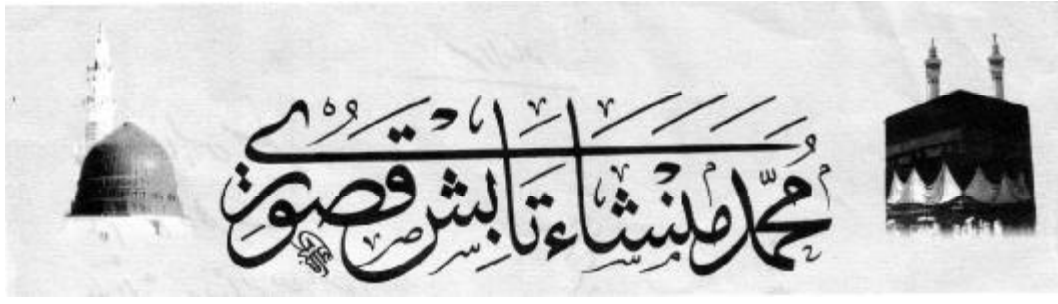 محمد منشاء تابش قصوری